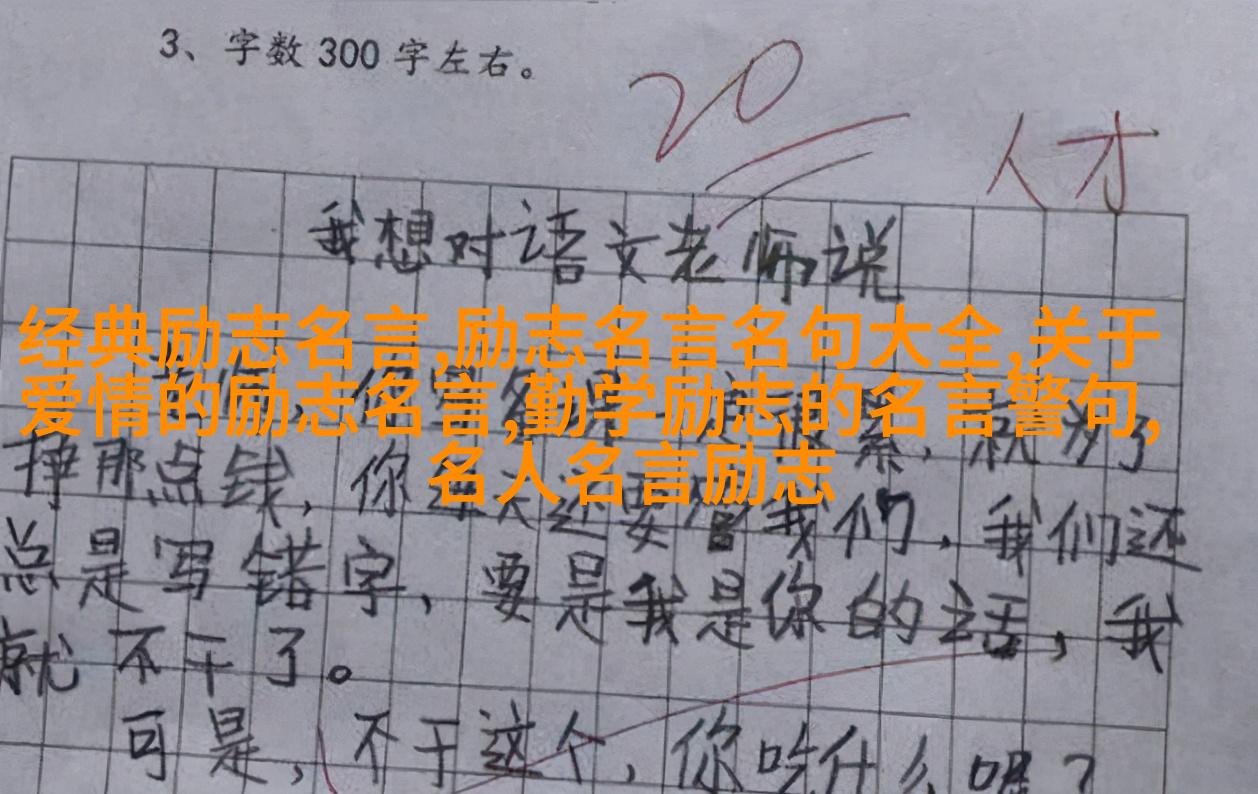 3、字数300字左右。
20
人才
我想对语文老师说
经典励志名言,励志名言名句大全,关于
爱情的励志名言,勤学励志的名言警句,
名人名言励志
挣那点钱,你
我们,我们还
总是写错字,要是我是你的话,我
就不干了。
可是,不干这个,你吃什么呢?